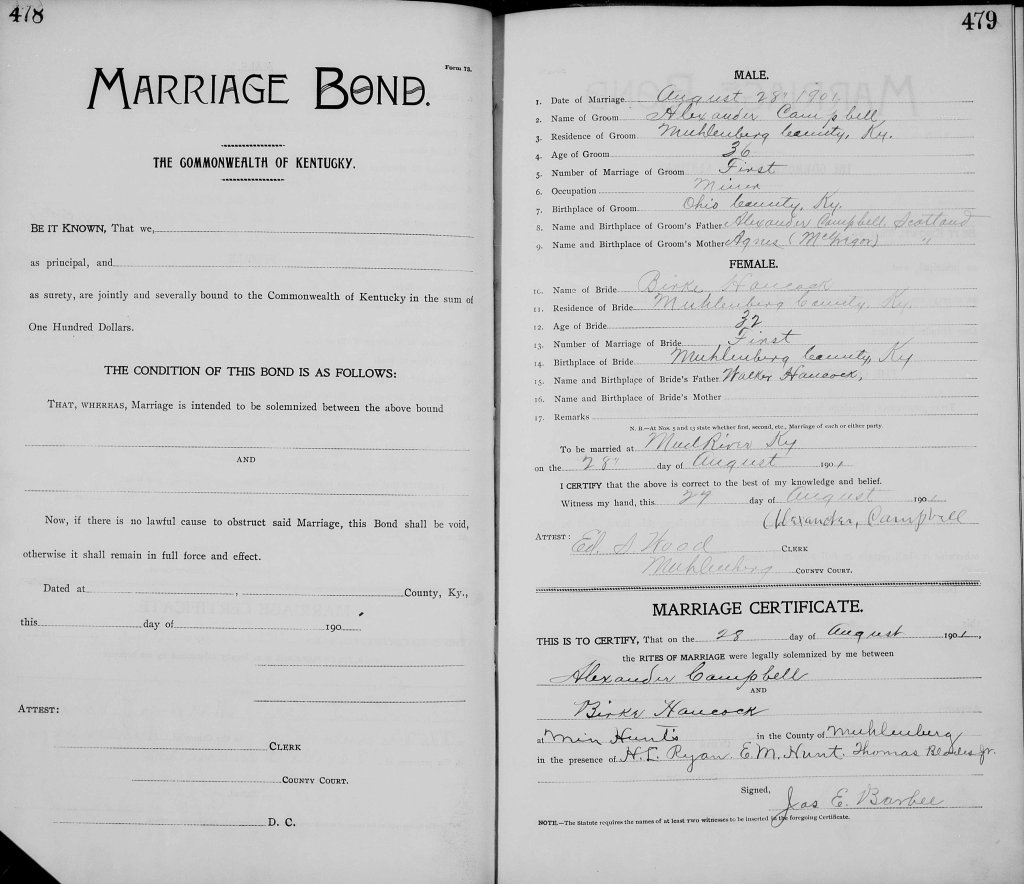 478
Form 73.
MARRIAGE BOND.
THE COMMONWEALTH OF KENTUCKY.
BE IT KNOWN, That we,
as principal, and
as surety, are jointly and severally bound to the Commonwealth of Kentucky in the sum of
One Hundred Dollars.
THE CONDITION OF THIS BOND IS AS FOLLOWS:
THAT, WHEREAS, Marriage is intended to be solemnized between the above bound
AND
Now, if there is no lawful cause to obstruct said Marriage, this Bond shall be void,
otherwise it shall remain in full force and effect.
Dated at , County, Ky.,
this day of 190
ATTEST:
CLERK
COUNTY COURT.
D. C.
479
MALE.
1. Date of Marriage August 28, 1901
2. Name of Groom Alexander Campbell
3. Residence of Groom Muhlenberg County, Ky.
4. Age of Groom 36
5. Number of Marriage of Groom First
6. Occupation Miner
7. Birthplace of Groom Ohio County, Ky.
8. Name and Birthplace of Groom's Father Alexander Campbell, Scotland
9. Name and Birthplace of Groom's Mother Agnes (McGrigor) "
FEMALE.
10. Name of Bride Birke Hancock
11. Residence of Bride Muhlenberg County, Ky.
12. Age of Bride 32
13. Number of Marriage of Bride First
14. Birthplace of Bride Muhlenberg County, Ky
15. Name and Birthplace of Bride's Father Walker Hancock,
16. Name and Birthplace of Bride's Mother
17. Remarks
N. B.—At Nos. 5 and 13 state whether first, second, etc., Marriage of each or either party.
To be married at Mud River Ky
on the 28 day of August 1901
I CERTIFY that the above is correct to the best of my knowledge and belief.
Witness my hand, this 29 day of August 1901
Alexander, Campbell
ATTEST: Ed. S. Wood CLERK
Muhlenberg COUNTY COURT.
MARRIAGE CERTIFICATE.
THIS IS TO CERTIFY, That on the 28 day of August 1901,
the RITES OF MARRIAGE were legally solemnized by me between
Alexander Campbell
AND
Birke Hancock
at Hunt's in the County of Muhlenberg
in the presence of H. L. Ryan. E. M. Hunt. Thomas Blades Jr.
Signed,
Jas E. Barbee
NOTE.—The Statute requires the names of at least two witnesses to be inserted in the foregoing Certificate.